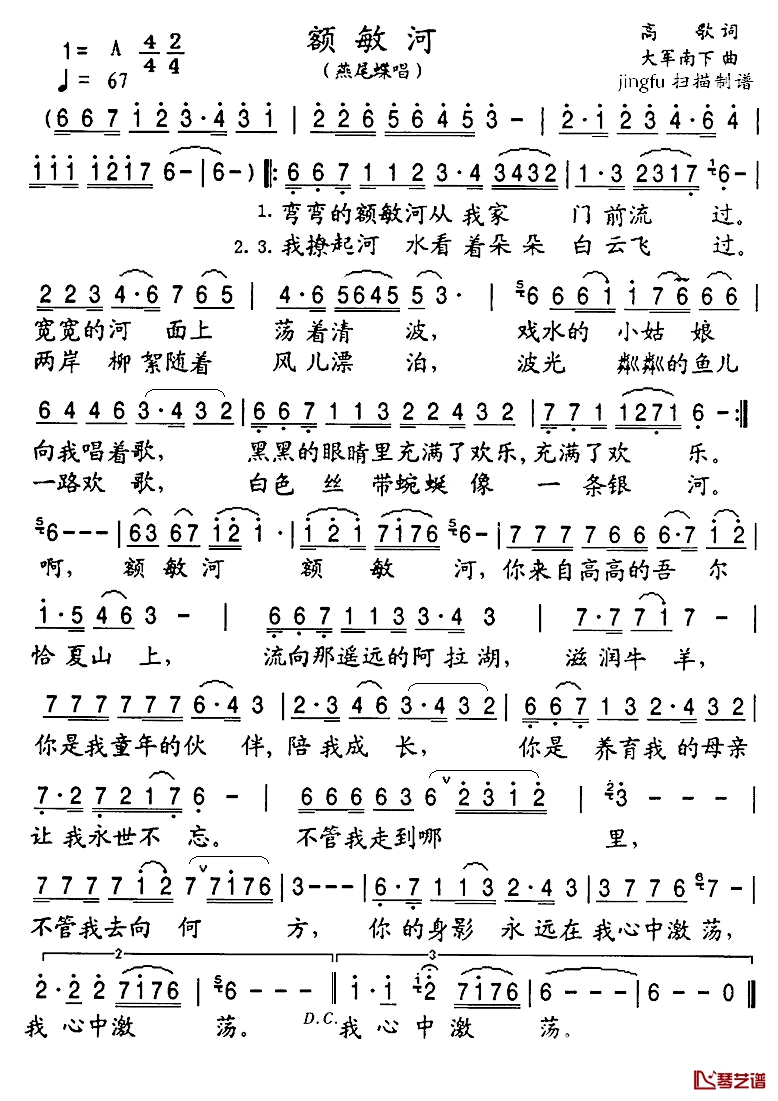 额敏河
（燕尾蝶唱）
1= A 4/4 2/4
♩= 67
高 歌 词
大军南下 曲
jingfu 扫描制谱
(6 6 7 1 2 3·4 3 1 | 2 2 6 5 6 4 5 3 - | 2·1 2 3·4 6 4 |
1 1 1 1 2 1 7 6 - | 6 - ) ‖: 6 6 7 1 1 2 3·4 3 4 3 2 | 1·3 2 3 1 7 6 - |
1. 弯弯的额敏河从我家 门前流 过。
2. 3. 我撩起河 水看着朵朵 白云飞 过。
2 2 3 4·6 7 6 5 | 4·6 5 6 4 5 5 3· | 6 6 6 1 1 7 6 6 |
宽宽的河 面上 荡着清 波， 戏水的 小姑 娘
两岸 柳絮随着 风儿漂 泊， 波光 粼粼的鱼儿
6 4 4 6 3·4 3 2 | 6 6 7 1 1 3 2 2 4 3 2 | 7 7 1 1 2 7 1 6 - :‖
向我唱着歌， 黑黑的眼睛里充满了欢乐，充满了欢 乐。
一路欢 歌， 白色 丝 带蜿蜒 像 一 条银 河。
6 - - - | 6 3 6 7 1 2 1· | 1 2 1 7 1 7 6 6 - | 7 7 7 7 6 6 6·7 1 2 |
啊， 额 敏 河 额 敏 河，你来自高高的吾 尔
1·5 4 6 3 - | 6 6 7 1 1 3 3·4 3 | 7·7 7 1 7 - |
恰夏山 上， 流向那遥远的阿拉湖， 滋润牛 羊，
7 7 7 7 7 7 6·4 3 | 2·3 4 6 3·4 3 2 | 6 6 7 1 3 2·4 3 2 |
你是我童年的伙 伴，陪我成 长， 你是 养育我 的母亲
7·2 7 2 1 7 6 - | 6 6 6 6 3 6 2 3 1 2 | 3 - - - |
让 我永世不 忘。 不管我走到哪 里，
7 7 7 7 1 2 7 7 1 7 6 | 3 - - - | 6·7 1 1 3 2·3 4 | 3 6 7 6 7 - |
不管我去向 何 方， 你 的身影 永 远在我心中激荡，
2 3
2·2 2 7 1 7 6 | 6 - - - ‖ 1·1 2 7 1 7 6 | 6 - - - | 6 - - 0 ‖
我 心中激 荡。 D.C. 我 心 中 激 荡。
琴艺谱